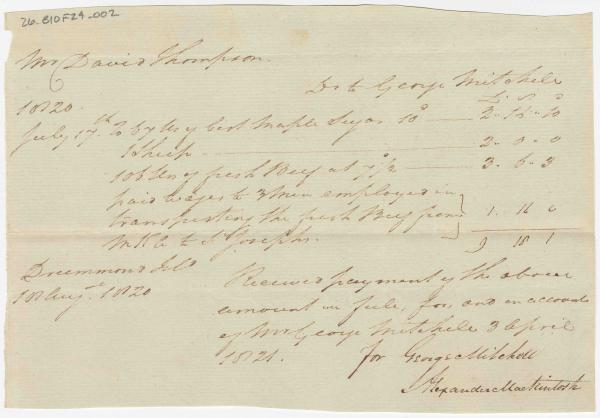 26-B10F24-002
Mr David Thompson.
Dr to George Mitchell
1820.
£ S D
July 17th To 67 lbs of best Maple Sugar 10d 2 - 15 - 10
1 Sheep 2 - 0 - 0
106 lbs of fresh Beef at 7d 1/2 3 - 6 - 3
paid wages to 3 Men employed in
transporting the fresh Beef from 1. 16 0
to St Josephs.
9 18 1
Drummond Isld
18 Augt 1820
Received payment of the above
amount in full, for and on account
of Mr George Mitchell 3 April
1821. for George Mitchell
Alexander Mackintosh